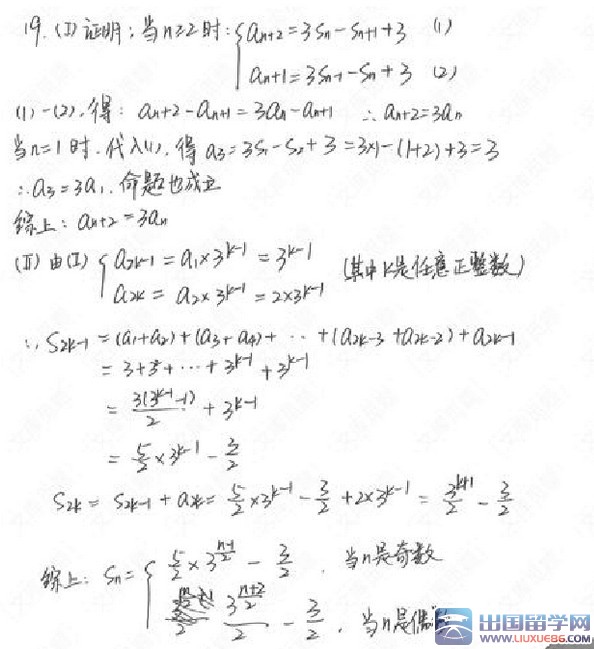 19. (I) 证明: 当n≥2时: { an+2 = 3Sn - Sn+1 + 3 (1)
an+1 = 3Sn-1 - Sn + 3 (2)
(1)-(2), 得: an+2 - an+1 = 3an - an+1 ∴ an+2 = 3an
当n=1时, 代入(1), 得 a3 = 3S1 - S2 + 3 = 3×1 - (1+2) + 3 = 3
∴ a3 = 3a1, 命题也成立
综上: an+2 = 3an
(II) 由(I) { a2k-1 = a1×3^(k-1) = 3^(k-1) (其中k是任意正整数)
a2k = a2×3^(k-1) = 2×3^(k-1)
∴ S2k-1 = (a1+a2) + (a3+a4) + ··· + (a2k-3 + a2k-2) + a2k-1
= 3 + 3² + ··· + 3^(k-1) + 3^(k-1)
= 3(3^(k-1) - 1)/2 + 3^(k-1)
= 5/2 × 3^(k-1) - 3/2
S2k = S2k-1 + a2k = 5/2 × 3^(k-1) - 3/2 + 2×3^(k-1) = 3^(k+1)/2 - 3/2
综上: Sn = { 5/2 × 3^((n-1)/2) - 3/2, 当n是奇数
3^((n+2)/2)/2 - 3/2, 当n是偶
出国留学网
www.liuxue86.com